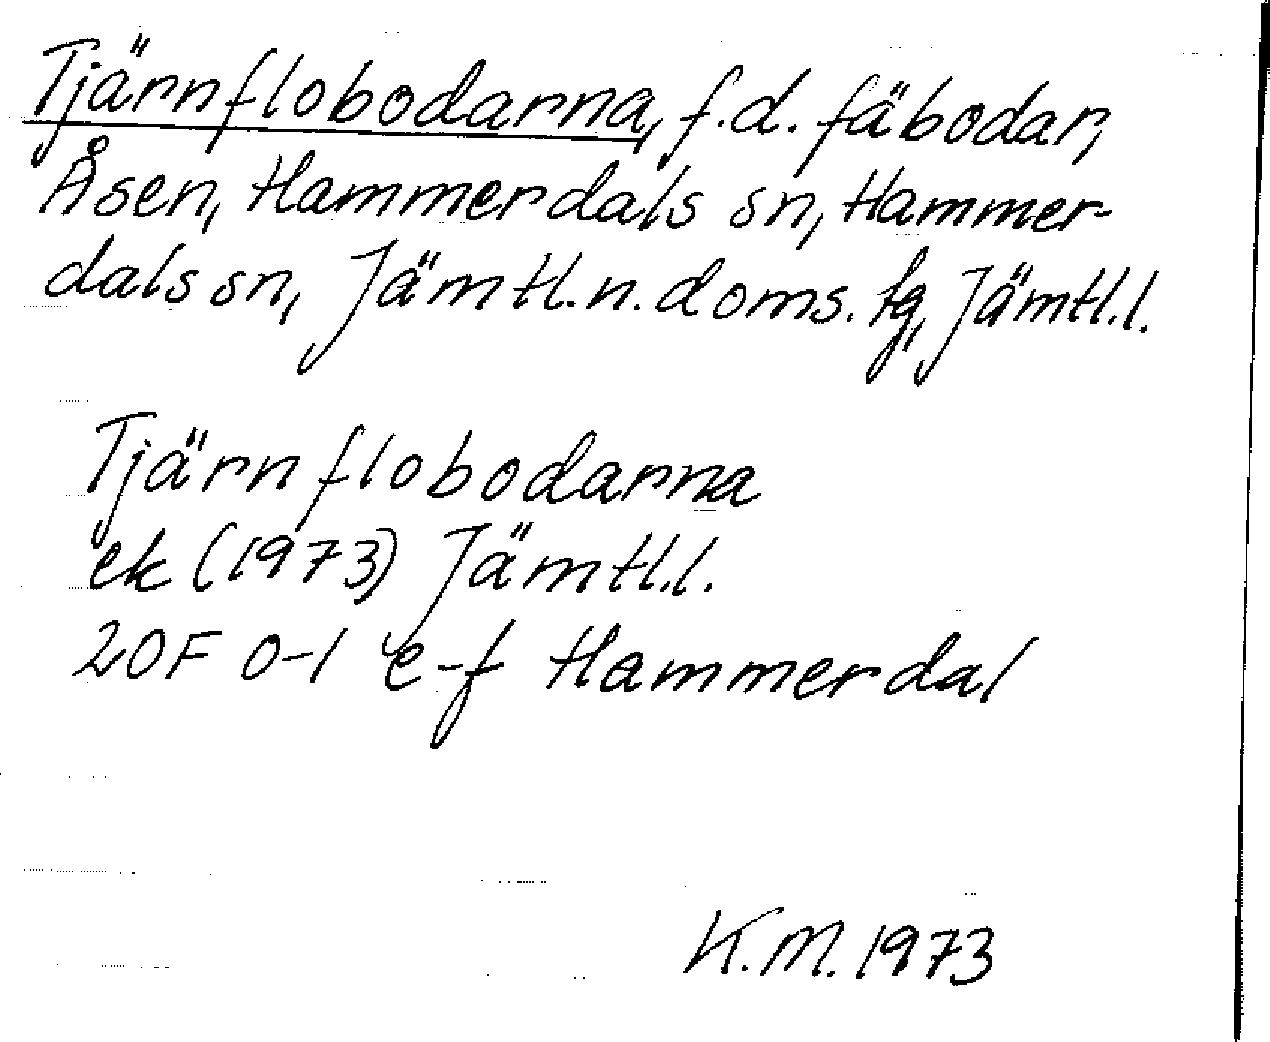 Tjärnflobodarna, f.d. fäbodar,
Åsen, Hammerdals sn, Hammer-
dals sn, Jämtl. n. doms. tg, Jämtl. l.
Tjärnflobodarna
ek (1973) Jämtl. l.
20F 0-1 e-f Hammerdal
K.M. 1973